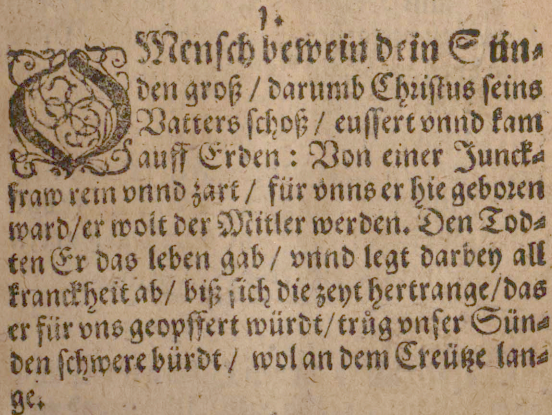 1.
O Mensch bewein dein Sün⸗
den groß / darumb Christus seins
Vatters schoß / eussert vnnd kam
auff Erden : Von einer Junck⸗
fraw rein vnnd zart / für vnns er hie geboren
ward / er wolt der Mitler werden. Den Tod⸗
ten Er das leben gab / vnnd legt darbey all
kranckheit ab / biß sich die zeyt hertrange / das
er für vns geopffert würdt / trůg vnser Sün⸗
den schwere bürdt / wol an dem Creütze lan⸗
ge.